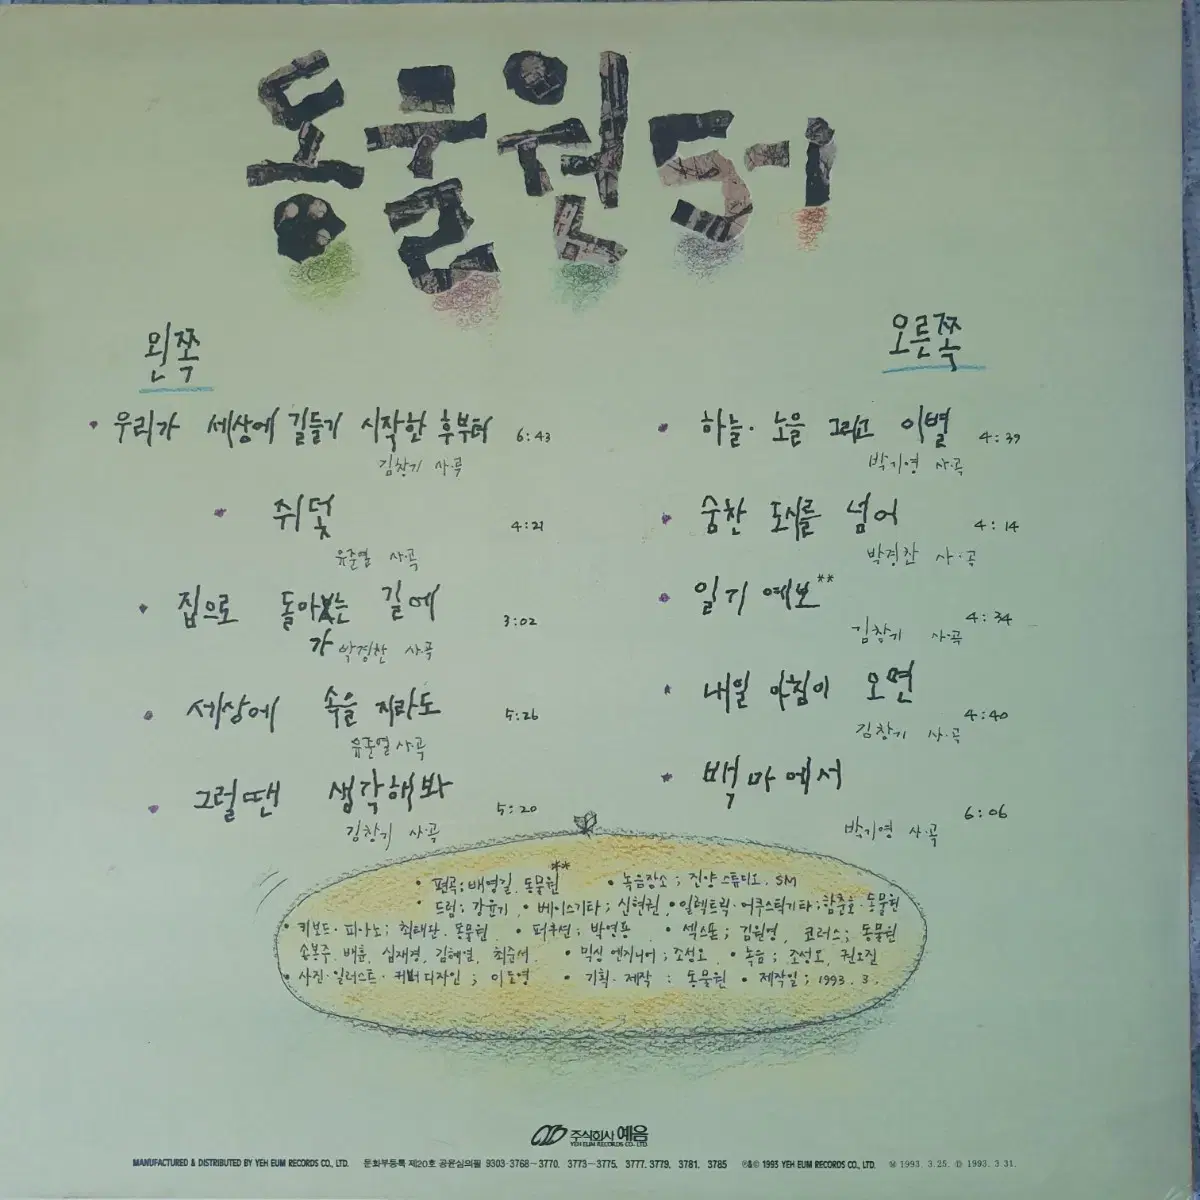 동물원 5-1
왼쪽
• 우리가 세상에 길들기 시작한 후부터 6:43
김창기 사·곡
• 쥐덫 4:21
유준열 사·곡
• 집으로 돌아가는 길에 3:02
박경찬 사·곡
• 세상에 속을 지라도 5:26
유준열 사·곡
• 그럴땐 생각해봐 5:20
김창기 사·곡
오른쪽
• 하늘·노을 그리고 이별 4:39
박기영 사·곡
• 숨찬 도시를 넘어 4:14
박경찬 사·곡
• 일기 예보** 4:34
김창기 사·곡
• 내일 아침이 오면 4:40
김창기 사·곡
• 백마에서 6:06
박기영 사·곡
• 편곡; 배영길, 동물원** • 녹음장소; 진양 스튜디오. SM
• 드럼; 강윤기, • 베이스기타; 신현권, • 일렉트릭·어쿠스틱기타; 함춘호·동물원
• 키보드·피아노; 최태완·동물원 • 퍼쿠션; 박영용 • 섹스폰; 김원영, 코러스; 동물원
송봉주, 배훈, 심재경, 김혜열, 최준서. • 믹싱 엔지니어; 조성오, • 녹음; 조성오, 권오진
• 사진·일러스트·커버디자인; 이도영 • 기획·제작: 동물원 • 제작일; 1993. 3.
주식회사 예음
YEH EUM RECORDS CO., LTD.
MANUFACTURED & DISTRIBUTED BY YEH EUM RECORDS CO., LTD. 문화부등록 제20호 공윤심의필 9303-3768~3770. 3773~3775. 3777. 3779. 3781. 3785 ℗&© 1993 YEH EUM RECORDS CO., LTD. Ⓜ 1993. 3. 25. Ⓓ 1993. 3. 31.